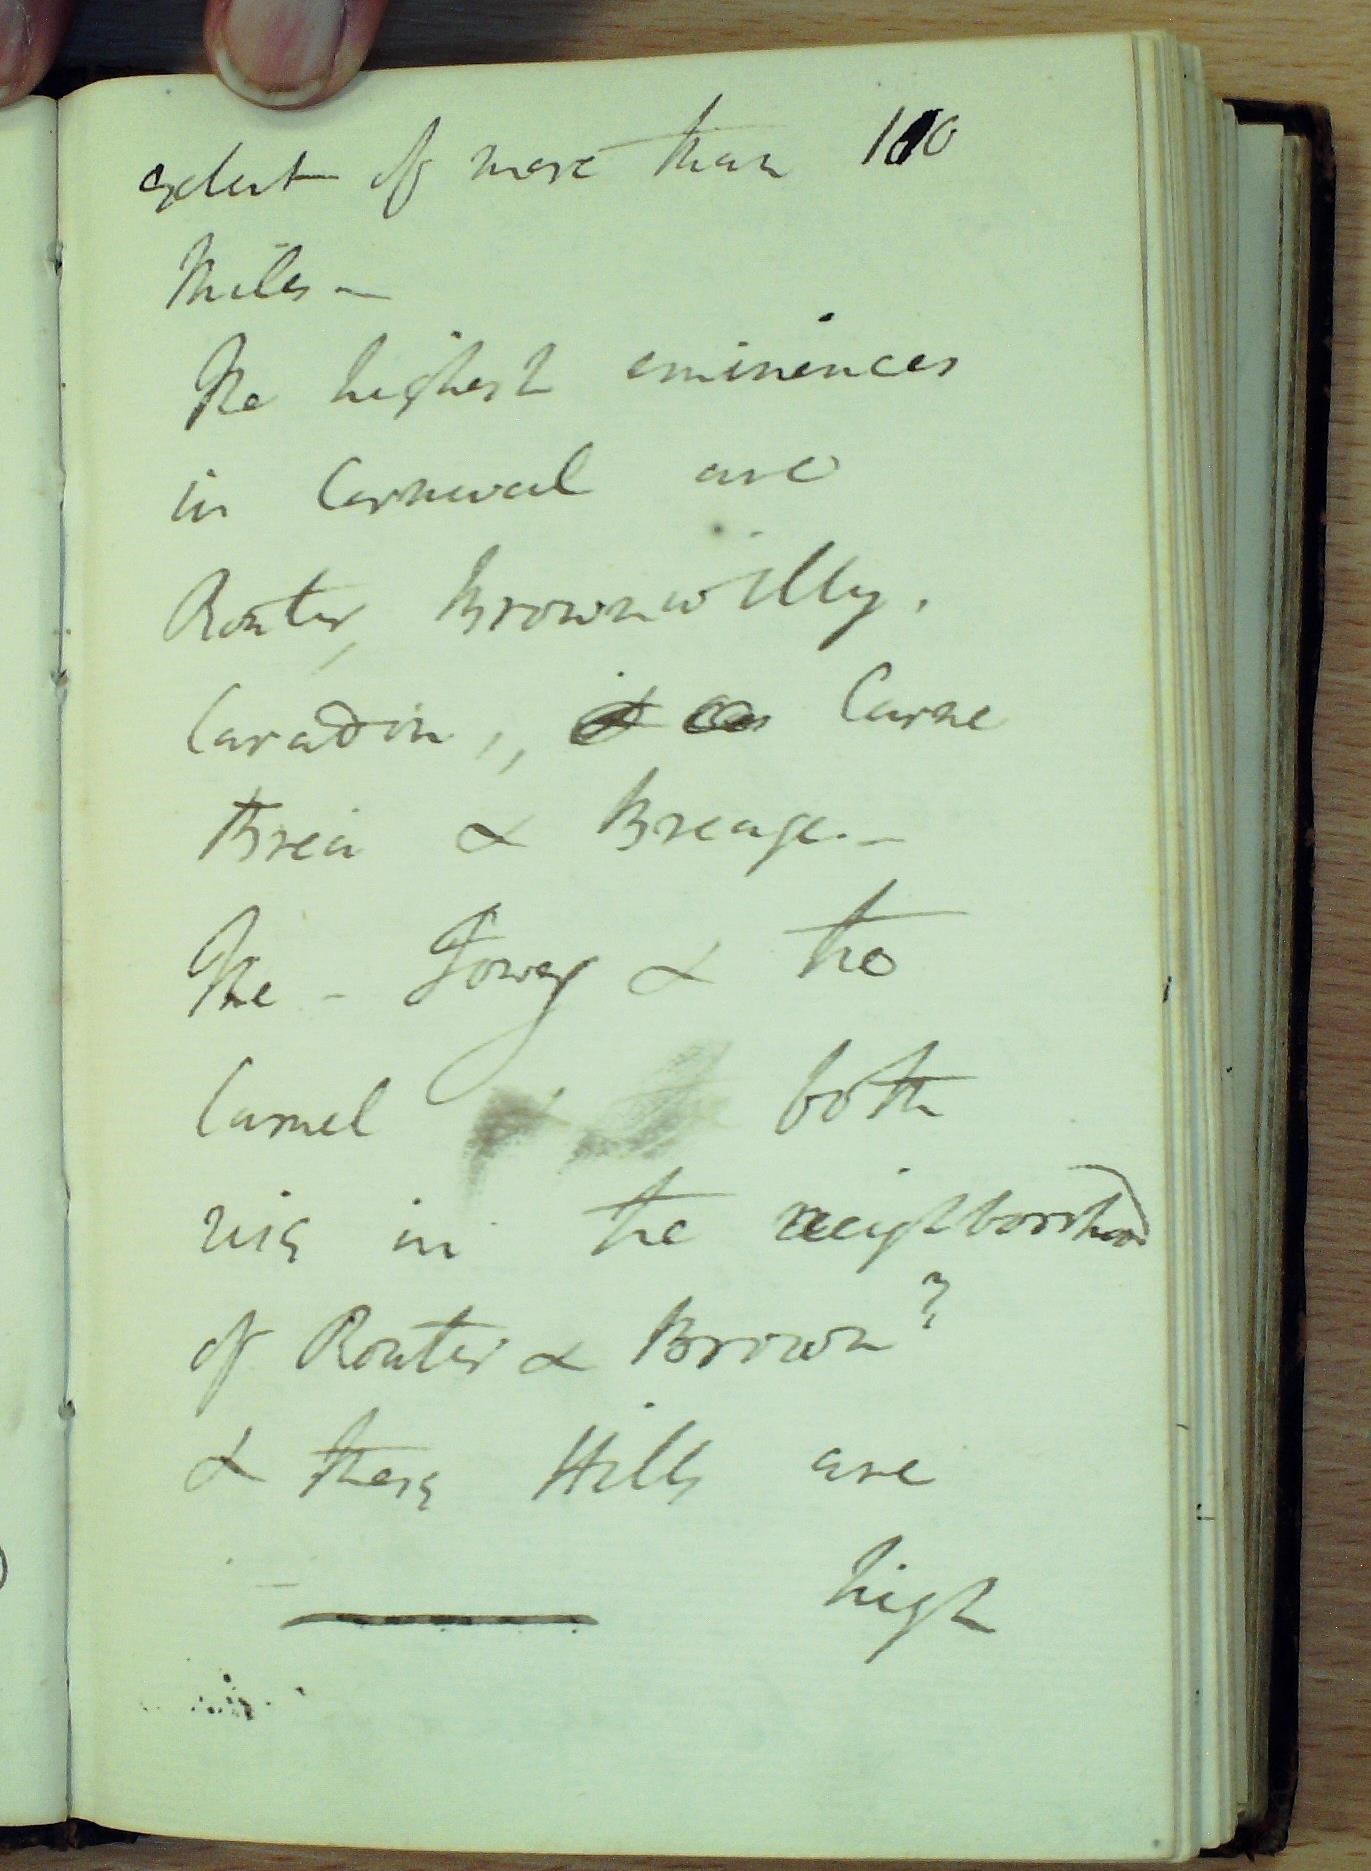 extent of more than 100
Miles -
The highest eminences
in Cornwal are
Router, Brownwilly.
Caradon,, Carne
Brea & Breage. -
The - Fowey & the
Camel both
rise in the neighborhood
of Router & Brown?
& these Hills are
high